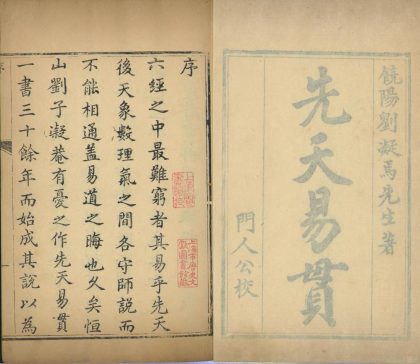 饒陽劉凝焉先生著
先天易貫
門人公校
序
六經之中最難窮者其易乎先天
後天象數理氣之間各守師說而
不能相通蓋易道之晦也久矣恒
山劉子凝菴有憂之作先天易貫
一書三十餘年而始成其說以為
上海市歷史文
獻圖書館藏